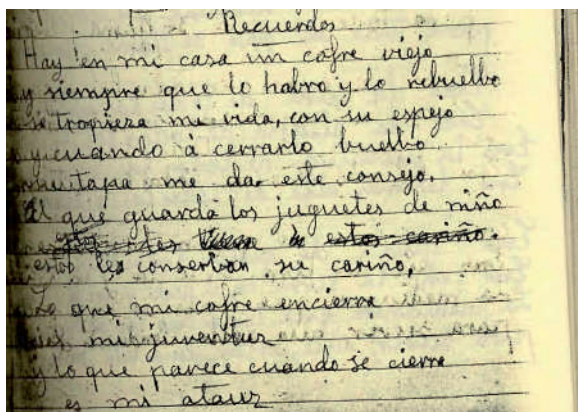 Recuerdos
Hay en mi casa un cofre viejo
y siempre que lo habro y lo rebuelbo
se tropieza mi vida, con su espejo
y cuando á cerrarlo buelbo
su tapa me da este consejo.
El que guarda los juguetes de niño
estos cariño.
estos les conserban su cariño,
Lo que mi cofre encierra
es mi juventuz
y lo que parece cuando se cierra
es mi atauz